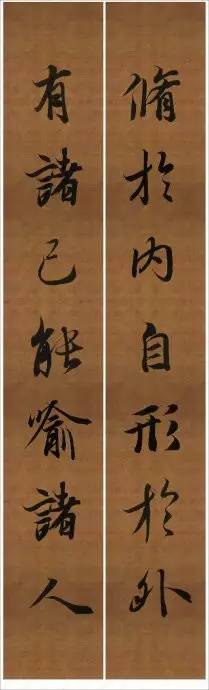 脩於内自形於外
有諸己能喻諸人